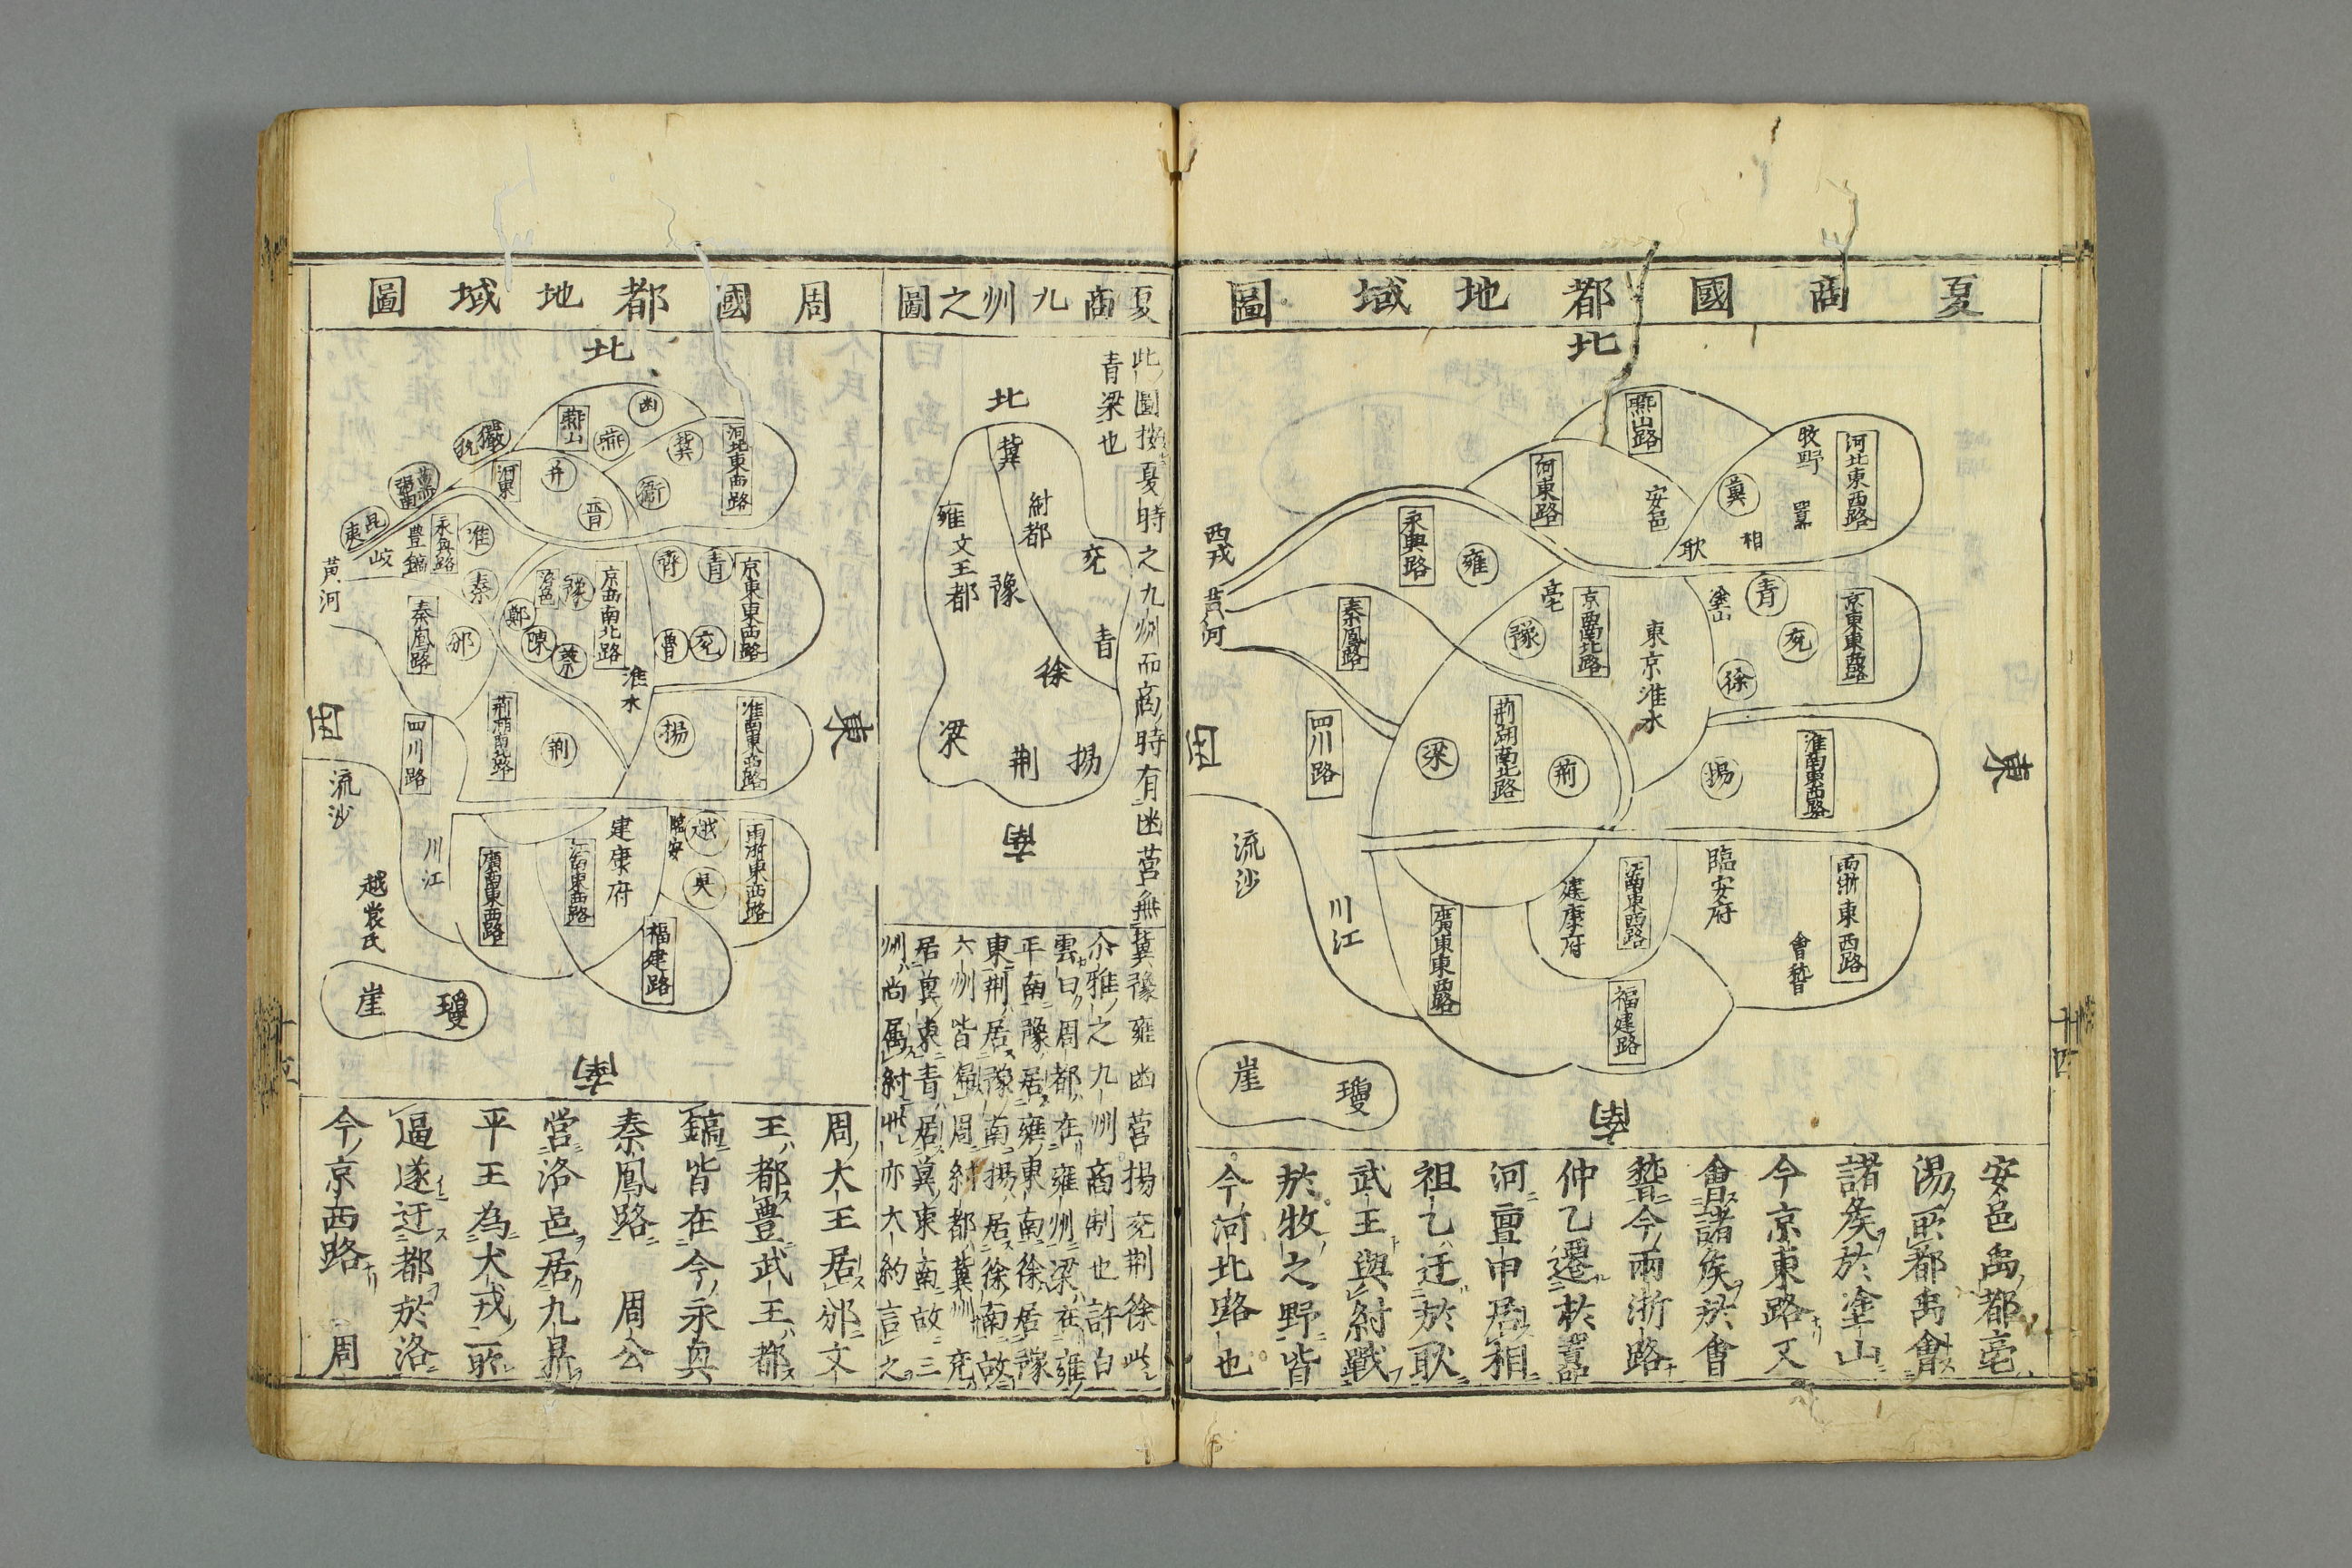 夏商國都地域圖
北
燕山路
牧野
河北東西路
冀
囂
相
耿
河東路
安邑
永興路
雍
西戎
黃河
秦鳳路
亳
豫
京西南北路
東京淮水
塗山
青
兗
徐
京東東西路
東
西
四川路
梁
荊湖南北路
荊
揚
淮南東西路
流沙
川江
廣東東西路
建康府
江南東西路
臨安府
會稽
兩浙東西路
福建路
崖
瓊
南
十四
安邑禹都亳
湯所都禹會
諸侯於塗山
今京東路又
會諸侯於會
稽今兩浙路
仲乙遷於囂
河亶甲居相
祖乙迁於耿
武王與紂戰
於牧之野皆
今河北路也
夏商九州之圖
此圖按夏時之九州而商時有幽營無
青梁也
北
冀
紂都
雍文王都
豫
兗
青
徐
梁
荊
揚
南
冀豫雍幽營揚兗荊徐此
尒雅之九州商制也許白
雲曰周都在雍州梁在雍
平南豫居雍東南徐居豫
東荊居豫南揚居徐南故
六州皆歸周紂都冀州兗
居冀東青居冀東南故三
州尚屬紂此亦大約言之
周國都地域圖
北
幽
燕山
燕
冀
河北東西路
玁狁
河東
并
衛
晉
昆夷
岐
豊鎬
永興路
淮
黃河
秦
秦鳳路
邠
洛邑
豫
鄭
陳
蔡
京西南北路
齊
青
魯
兗
京東東西路
淮水
東
西
四川路
荊湖南北路
荊
揚
淮南東西路
流沙
川江
越裳氏
廣南東西路
江南東西路
建康府
臨安
越
吳
兩浙東西路
福建路
崖
瓊
南
周大王居邠文
王都豊武王都
鎬皆在今永興
秦鳳路 周公
営洛邑居九鼎
平王為犬戎所
逼遂迁都於洛
今京西路 周